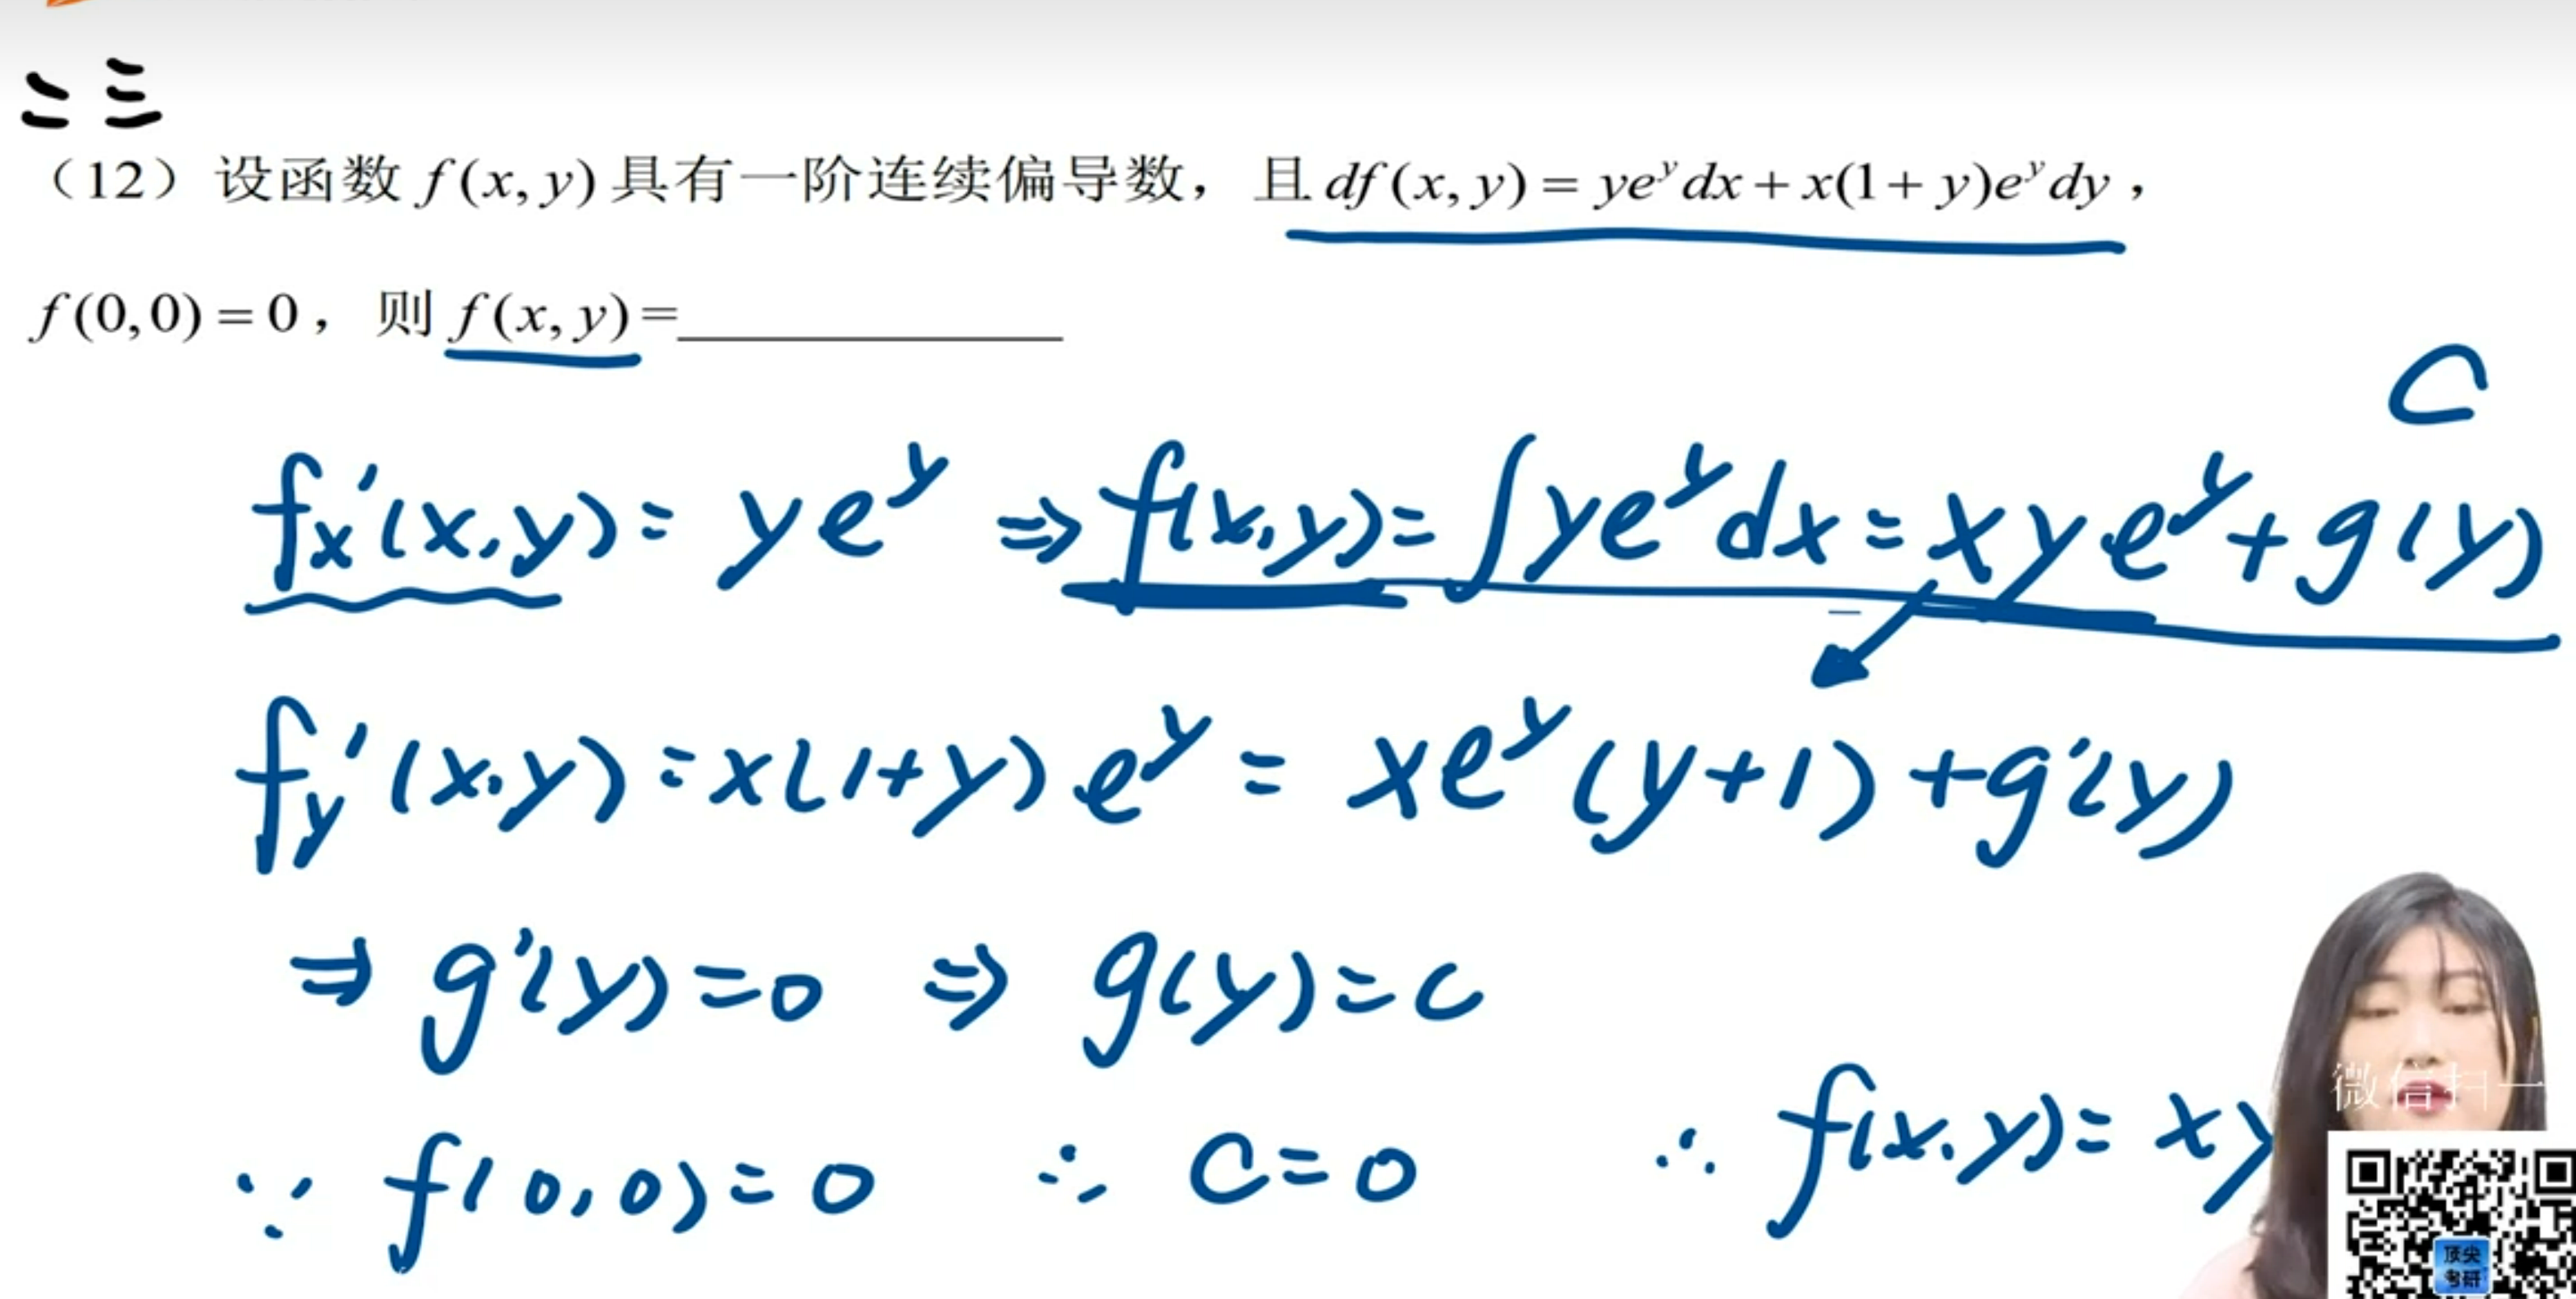 二 三
（12）设函数 f(x, y) 具有一阶连续偏导数，且 df(x, y) = ye^y dx + x(1+ y)e^y dy，
f(0,0) = 0，则 f(x, y) =____________
C
fx'(x,y) = ye^y ⇒ f(x,y) = ∫ye^y dx = xye^y + g(y)
fy'(x,y) = x(1+y)e^y = xe^y(y+1) + g'(y)
⇒ g'(y) = 0 ⇒ g(y) = c
∵ f(0,0) = 0 ∴ C = 0 ∴ f(x,y) = xy
微信扫一
顶尖
考研